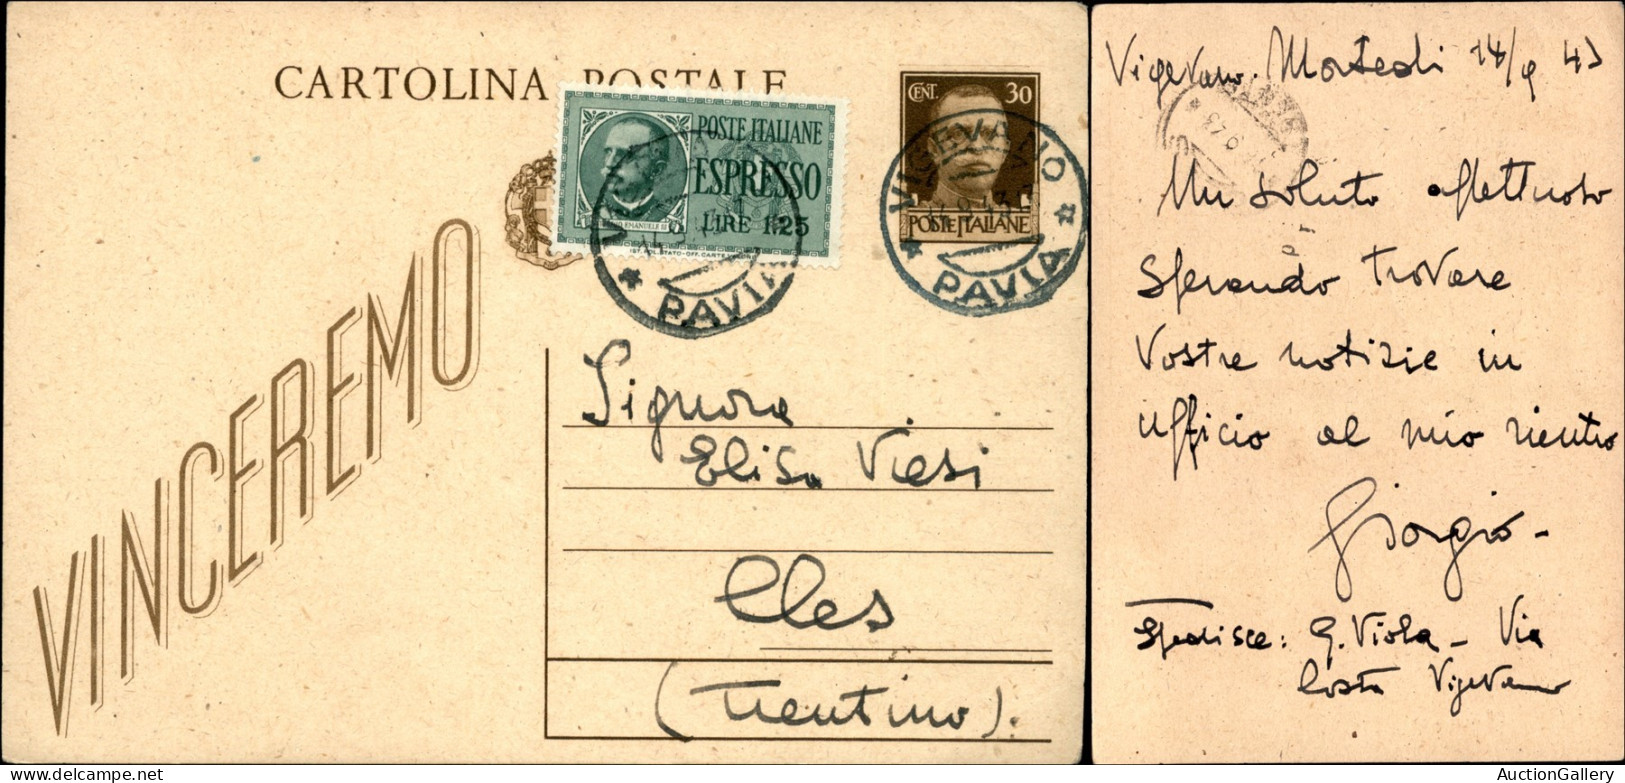 CARTOLINA POSTALE
POSTE ITALIANE
ESPRESSO
LIRE 1.25
CENT. 30
POSTE ITALIANE
VIGEVANO
PAVIA
PAVIA
VINCEREMO
Signora
Elisa Viesi
Cles
(Trentino).
Vigevano. Martedì 14/9 43
Un saluto affettuoso
Sperando trovare
Vostre notizie in
ufficio al mio rientro
Giorgio -
Spedisce: G. Viola - Via
Costa Vigevano
AuctionGallery